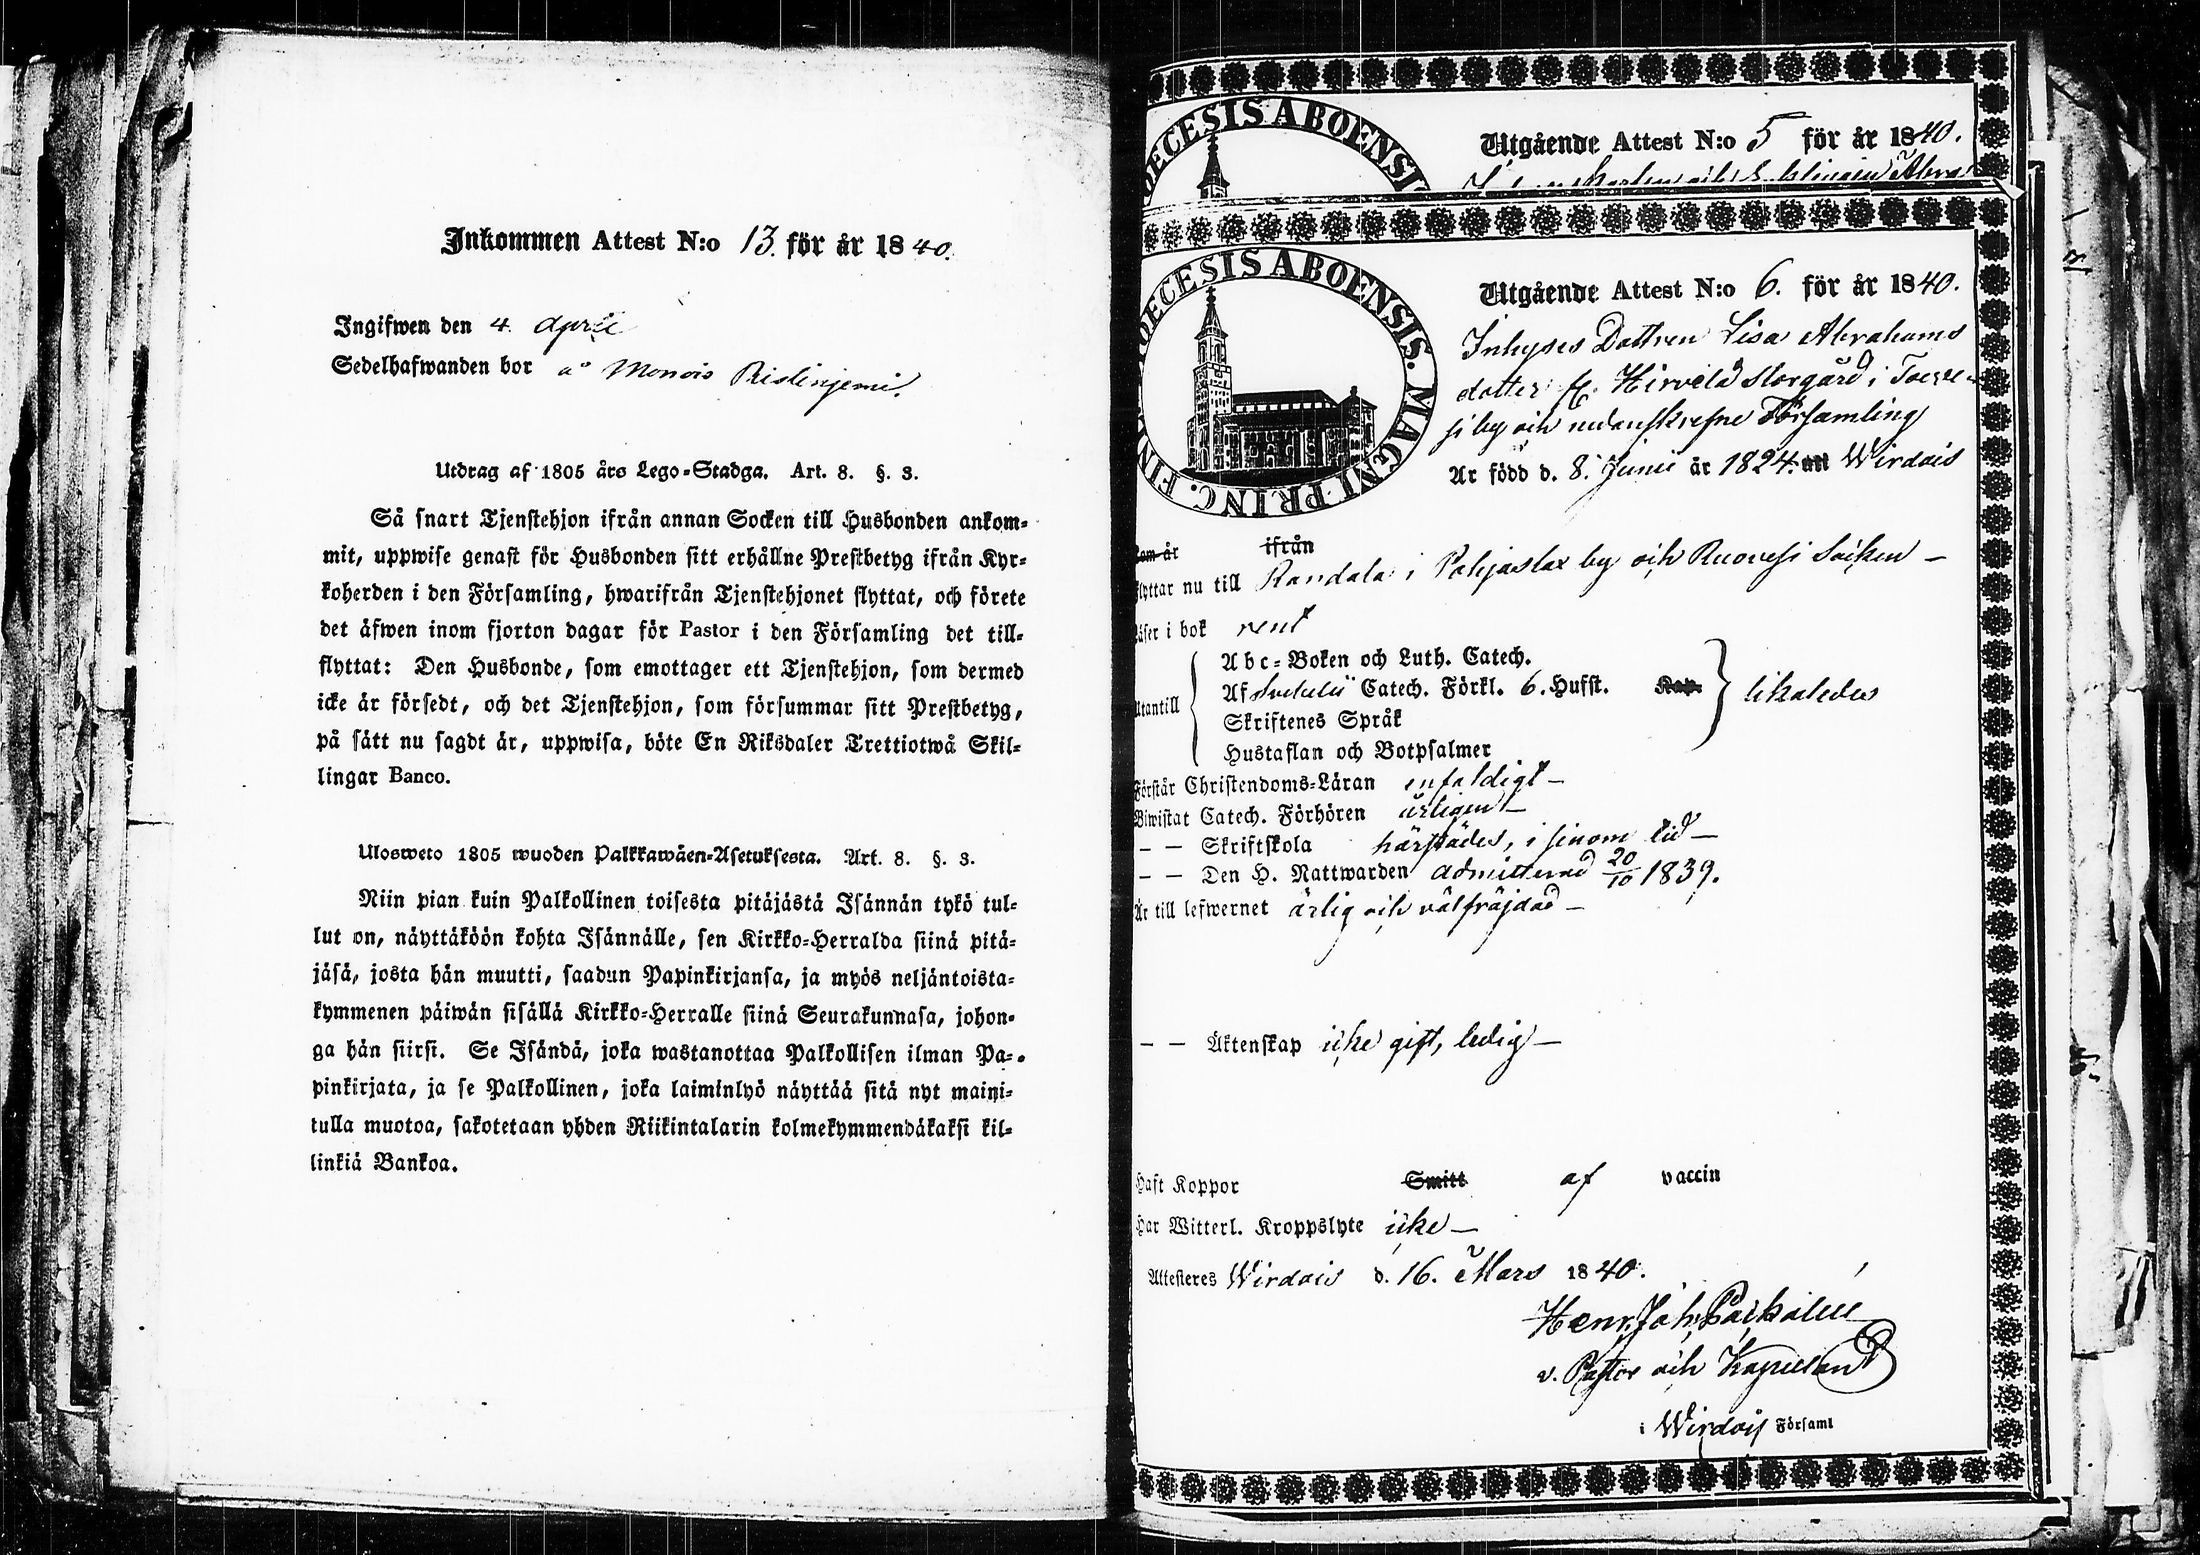 Inkommen Attest N:o 13. för år 1840.
Ingifwen den 4 April
Sedelhafwanden bor å Monois Ristinjemi.
Utdrag af 1805 års Lego-Stadga. Art. 8. §. 3.
Så snart Tjenstehjon ifrån annan Socken till Husbonden ankom-
mit, uppwise genast för Husbonden sitt erhållne Prestbetyg ifrån Kyr-
koherden i den Församling, hwarifrån Tjenstehjonet flyttat, och förete
det äfwen inom fjorton dagar för Pastor i den Församling det till-
flyttat: Den Husbonde, som emottager ett Tjenstehjon, som dermed
icke är försedt, och det Tjenstehjon, som försummar sitt Prestbetyg,
på sätt nu sagdt är, uppwisa, böte En Riksdaler Trettiotwå Skil-
lingar Banco.
Ulosweto 1805 wuoden Palkkawäen-Asetuksesta. Art. 8. §. 3.
Niin pian kuin Palkollinen toisesta pitäjästä Isännän tykö tul-
lut on, näyttäköön kohta Isännälle, sen Kirkko-Herralda siinä pitä-
jäsä, josta hän muutti, saadun Papinkirjansa, ja myös neljäntoista-
kymmenen päiwän sisällä Kirkko-Herralle siinä Seurakunnasa, johon-
ga hän siirsi. Se Isändä, joka wastanottaa Palkollisen ilman Pa-
pinkirjata, ja se Palkollinen, joka laiminlyö näyttää sitä nyt maini-
tulla muotoa, sakotetaan yhden Riikintalarin kolmekymmendäkaksi kil-
linkiä Bankoa.
DIOECESIS ABOENSI
Utgående Attest N:o 5 för år 1840.
DIOECESIS ABOENSIS. MAGNI PRINC. FIN
Utgående Attest N:o 6. för år 1840.
Inhyses Dottren Lisa Abrahams
dotter fr. Hirvelä Storgård i
by och nedanskrefne Församling
Är född d. 8. Junii år 1824. Wirdois
kom år ifrån
flyttar nu till Randala i Pohjaslax by och Ruovesi Socken –
Läser i bok rent
Utantill
Abc-Boken och Luth. Catech.
Af Svebelii Catech. Förkl. 6. Hufst. Kap. likaledes
Skriftenes Språk
Hustaflan och Botpsalmer
Förstår Christendoms-Läran enfaldigt –
Biwistat Catech. Förhören årligen –
– – Skriftskola härstädes, i sinom tid –
– – Den H. Nattwarden admitterad 20/10 1839.
Är till lefwernet ärlig och välfräjdad –
– – Äktenskap icke gift, ledig –
Haft Koppor Smitt af vaccin
Har Witterl. Kroppslyte icke –
Attesteres Wirdois d. 16. Mars 1840.
Henr. Joh.
v. Pastor och Kapellan
i Wirdois Församl